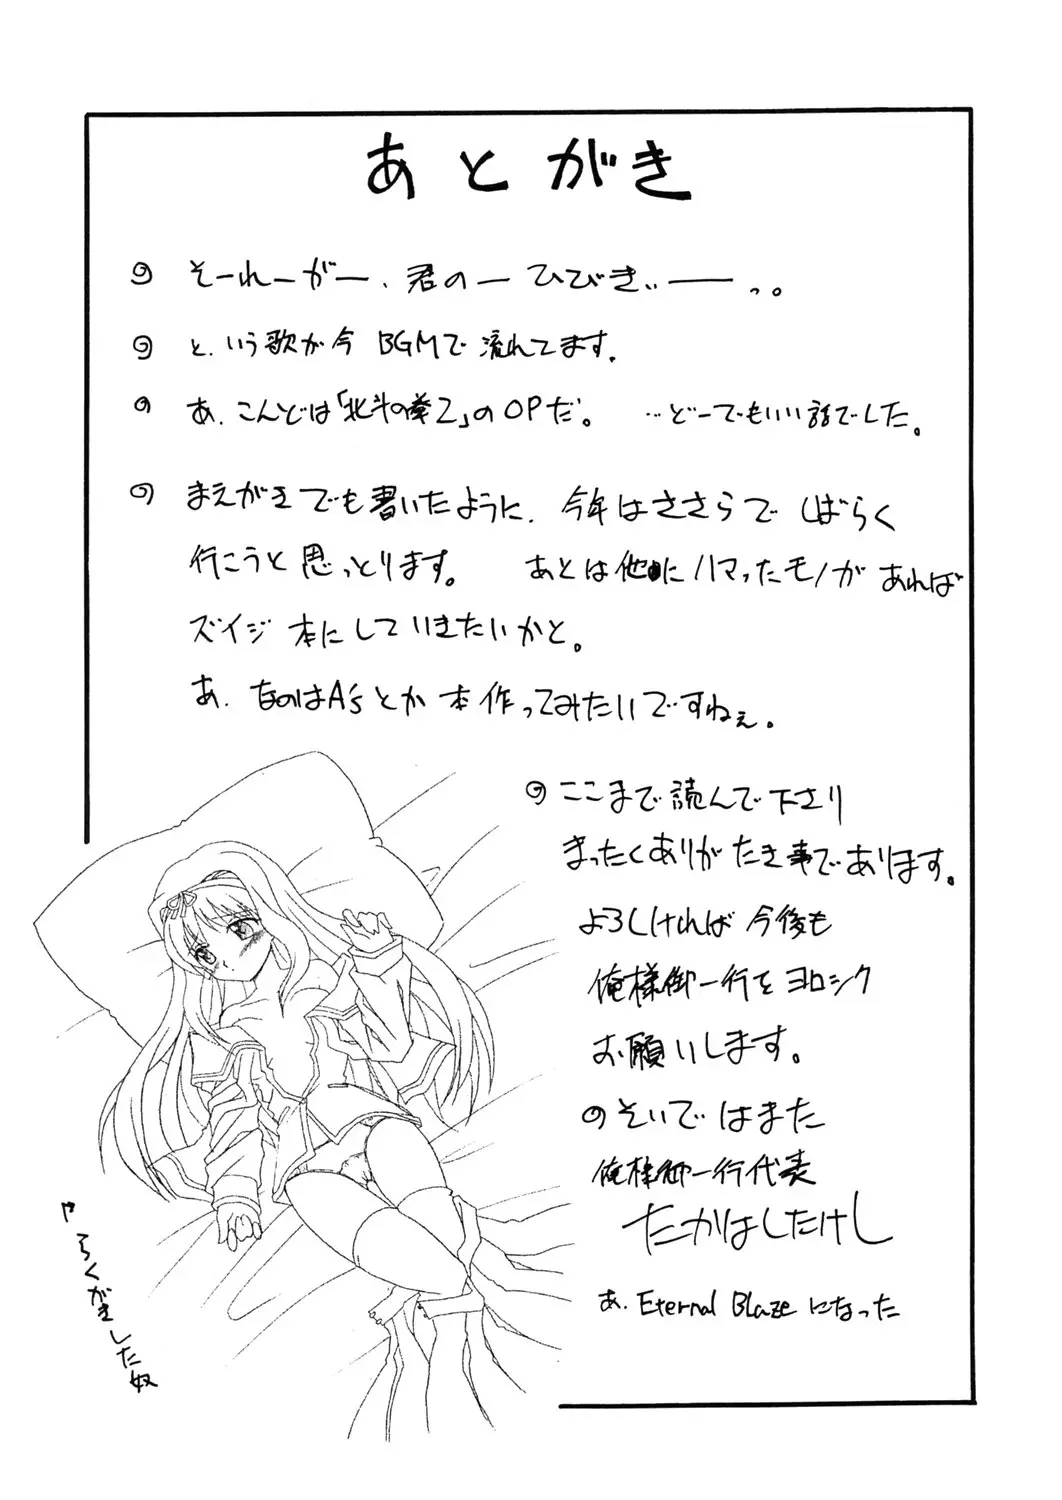 あとがき
の そーれーがー、君のーひびきぃーーっ。
の と、いう歌が今 BGMで流れてます。
の あ、こんどは「北斗の拳2」のOPだ。 …どーでもいい話でした。
の まえがきでも書いたように、今年はささらでしばらく
行こうと思っとります。 あとは他にハマったモノがあれば
ズイジ本にしていきたいかと。
あ、なのはA'sとか本作ってみたいですねぇ。
の ここまで読んで下さり
まったくありがたき事であります。
よろしければ今後も
俺様御一行をヨロシク
お願いします。
の そいではまた
俺様御一行代表
たかはしたけし
あ、Eternal Blazeになった
や らくがきした奴